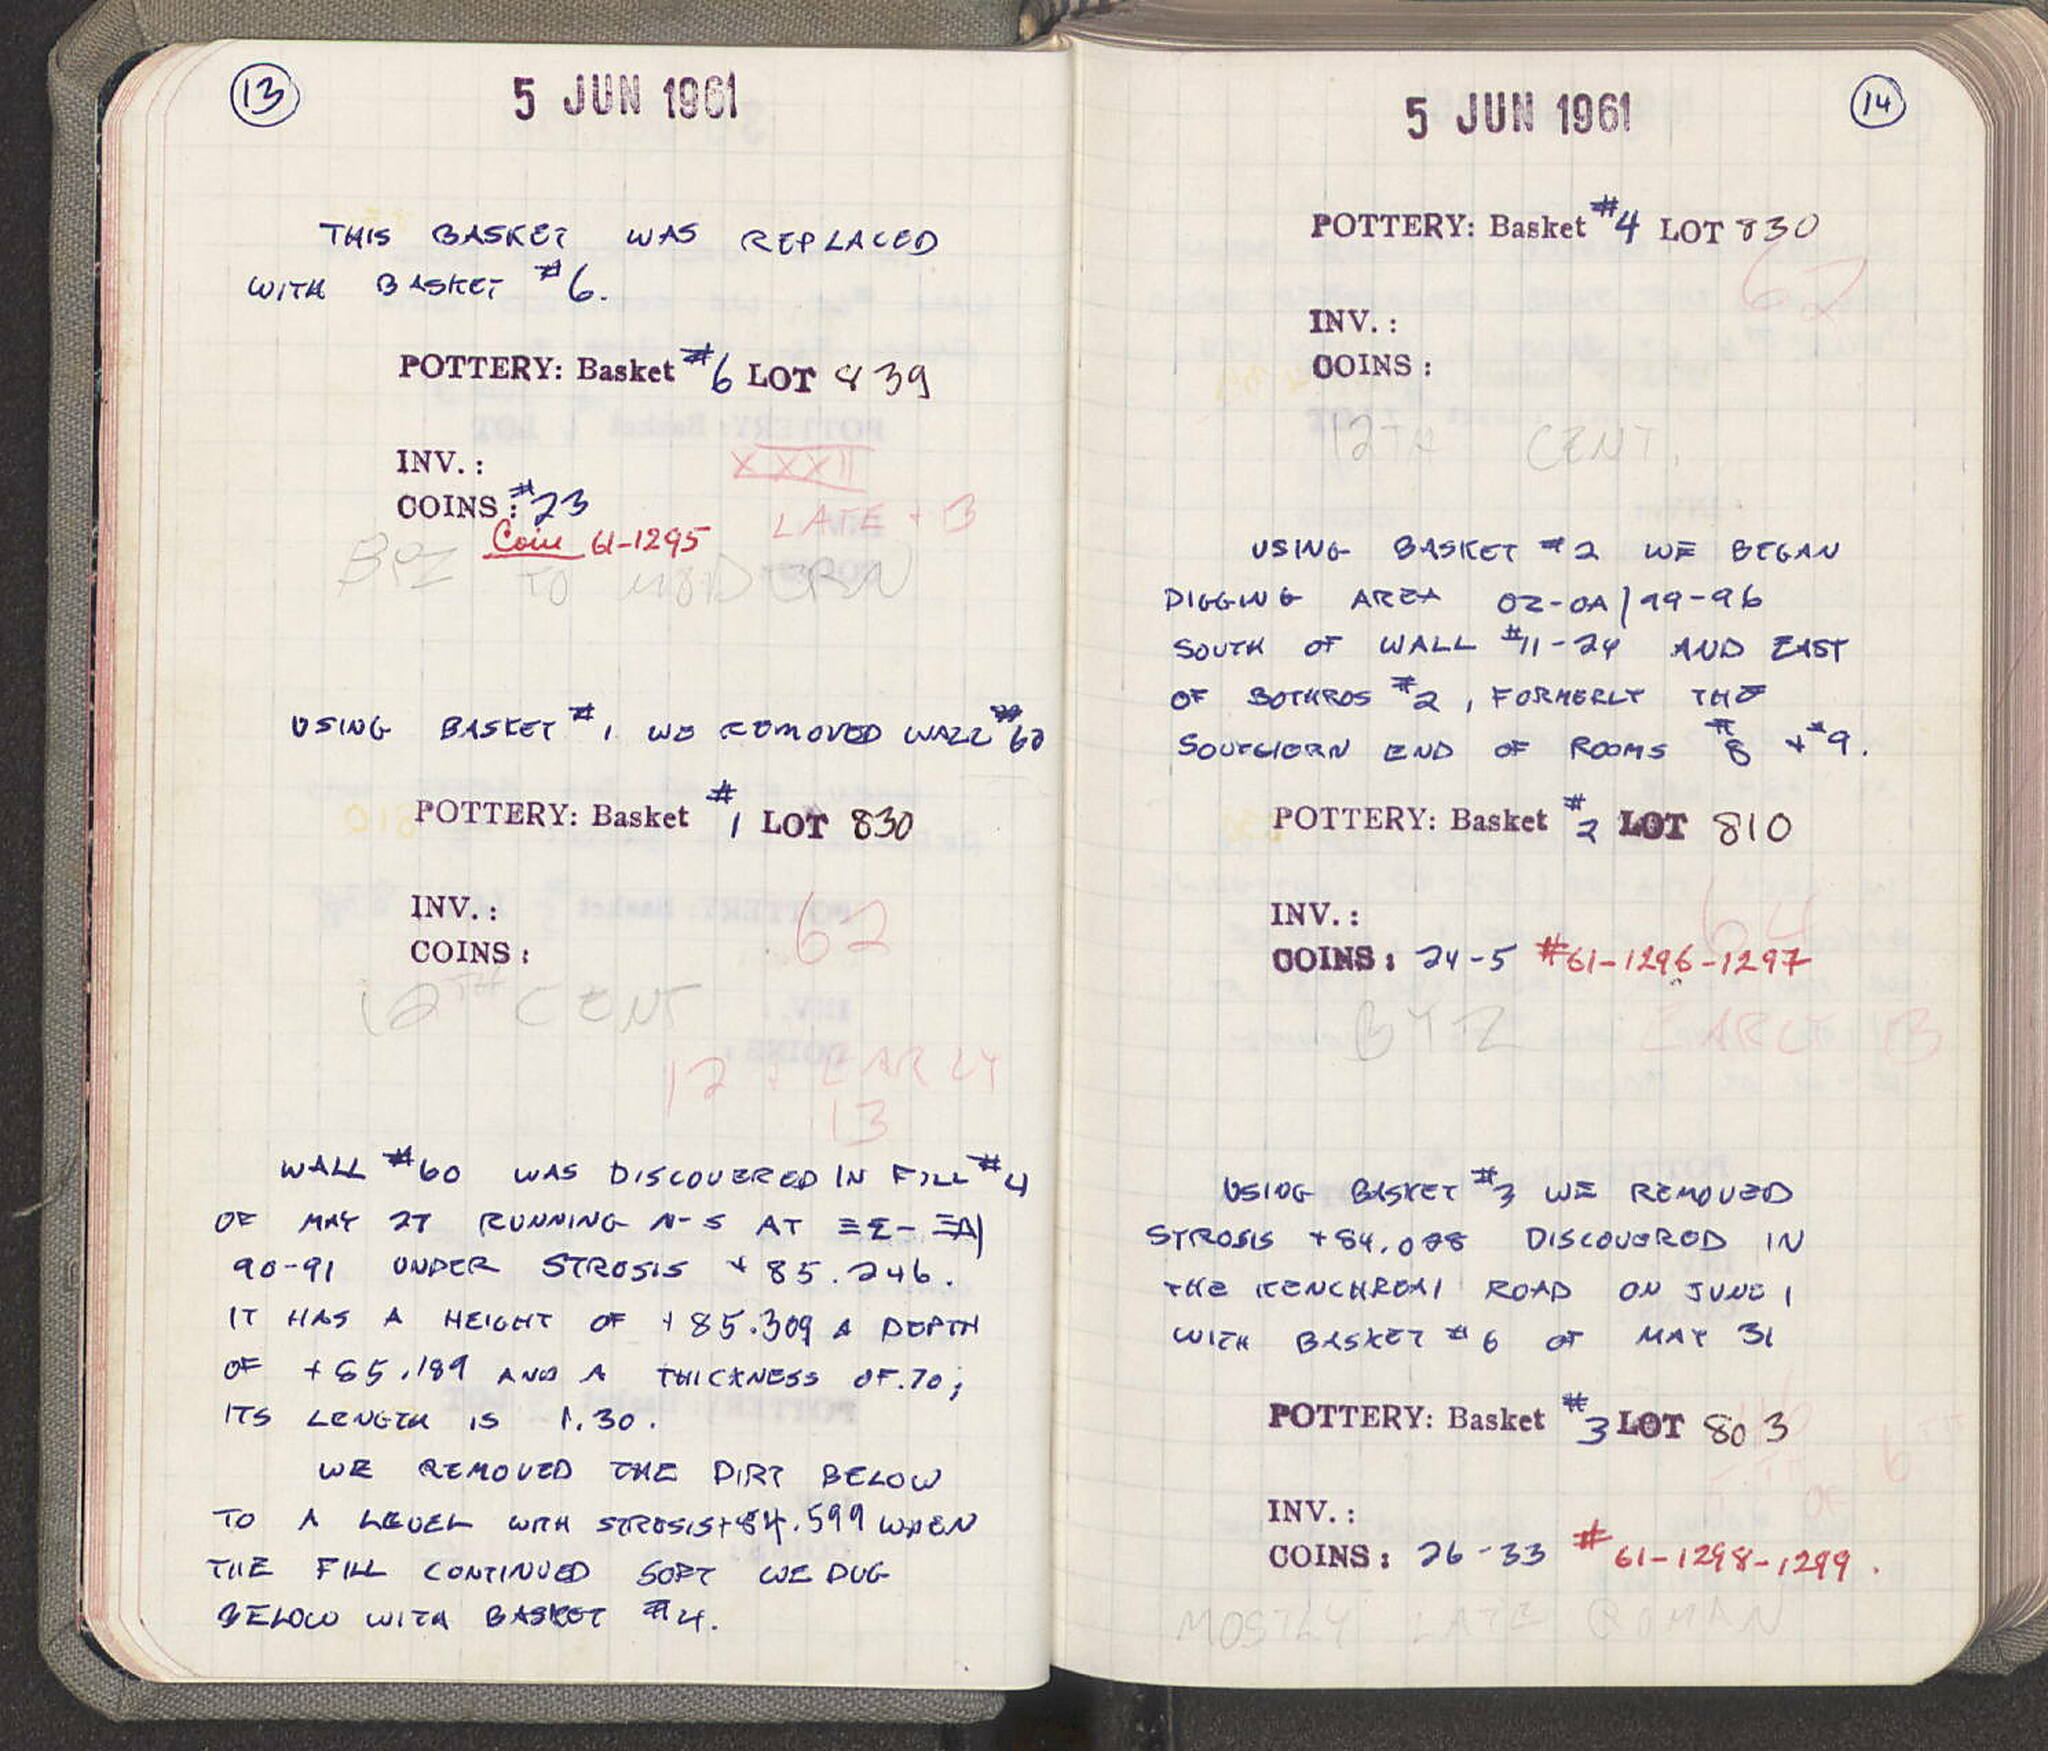 13
5 JUN 1961
THIS BASKET WAS REPLACED
WITH BASKET #6.
POTTERY: Basket #6 LOT 839
INV.:
XXXII
COINS: #23
LATE + B
Coin 61-1295
BYZ TO MODERN
USING BASKET #1 WE REMOVED WALL #60
POTTERY: Basket #1 LOT 830
INV.:
62
COINS:
12TH CENT
12 + EARLY
13
WALL #60 WAS DISCOVERED IN FILL #4
OF MAY 27 RUNNING N-S AT ΞΣ-ΞΑ/
90-91 UNDER STROSIS +85.246.
IT HAS A HEIGHT OF +85.309 A DEPTH
OF +85.189 AND A THICKNESS OF .70;
ITS LENGTH IS 1.30.
WE REMOVED THE DIRT BELOW
TO A LEVEL WITH STROSIS +84.599 WHEN
THE FILL CONTINUED SOFT WE DUG
BELOW WITH BASKET #4.
14
5 JUN 1961
POTTERY: Basket #4 LOT 830
62
INV.:
COINS:
12TH CENT.
USING BASKET #2 WE BEGAN
DIGGING AREA OZ-OA/99-96
SOUTH OF WALL #11-24 AND EAST
OF BOTHROS #2, FORMERLY THE
SOUTHERN END OF ROOMS #8 + #9.
POTTERY: Basket #2 LOT 810
INV.:
64
COINS: 24-5 #61-1296-1297
BYZ
EARLY B
USING BASKET #3 WE REMOVED
STROSIS +84.088 DISCOVERED IN
THE KENCHREAI ROAD ON JUNE 1
WITH BASKET #6 OF MAY 31
POTTERY: Basket #3 LOT 803
6TH
OF
INV.:
COINS: 26-33 #61-1298-1299.
MOSTLY LATE ROMAN